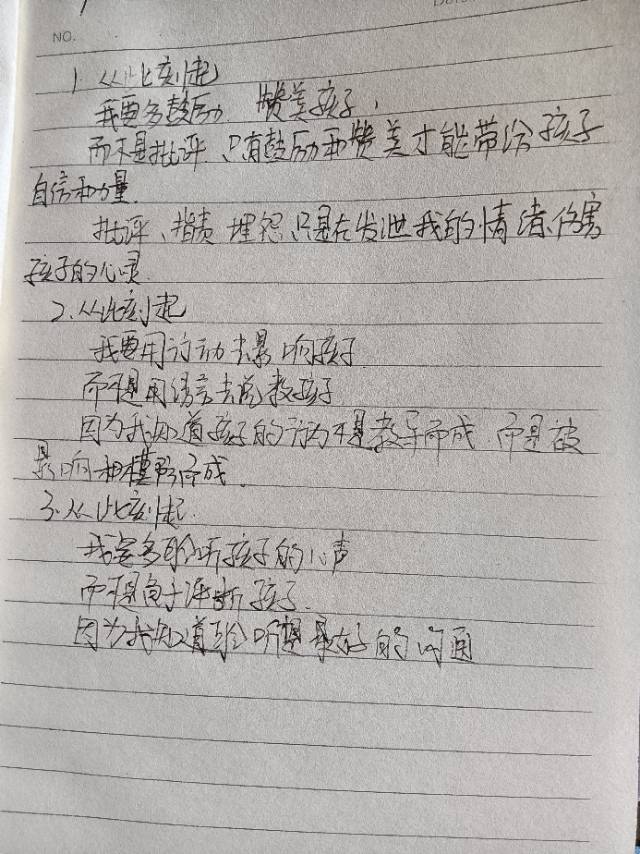 NO.
1. 从此刻起
我要多鼓励、赞美孩子,
而不是批评、只有鼓励和赞美才能带给孩子
自信和力量.
批评、指责 埋怨只是在发泄我的情绪、伤害
孩子的心灵.
2. 从此刻起
我要用行动去影响孩子
而不是用语言去说教孩子
因为我知道孩子的行为不是教导而成、而是被
影响和模仿而成.
3. 从此刻起.
我要多聆听孩子的心声
而不是急于评断孩子.
因为我知道聆听是最好的沟通